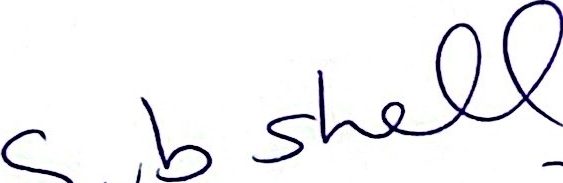 Sub shell